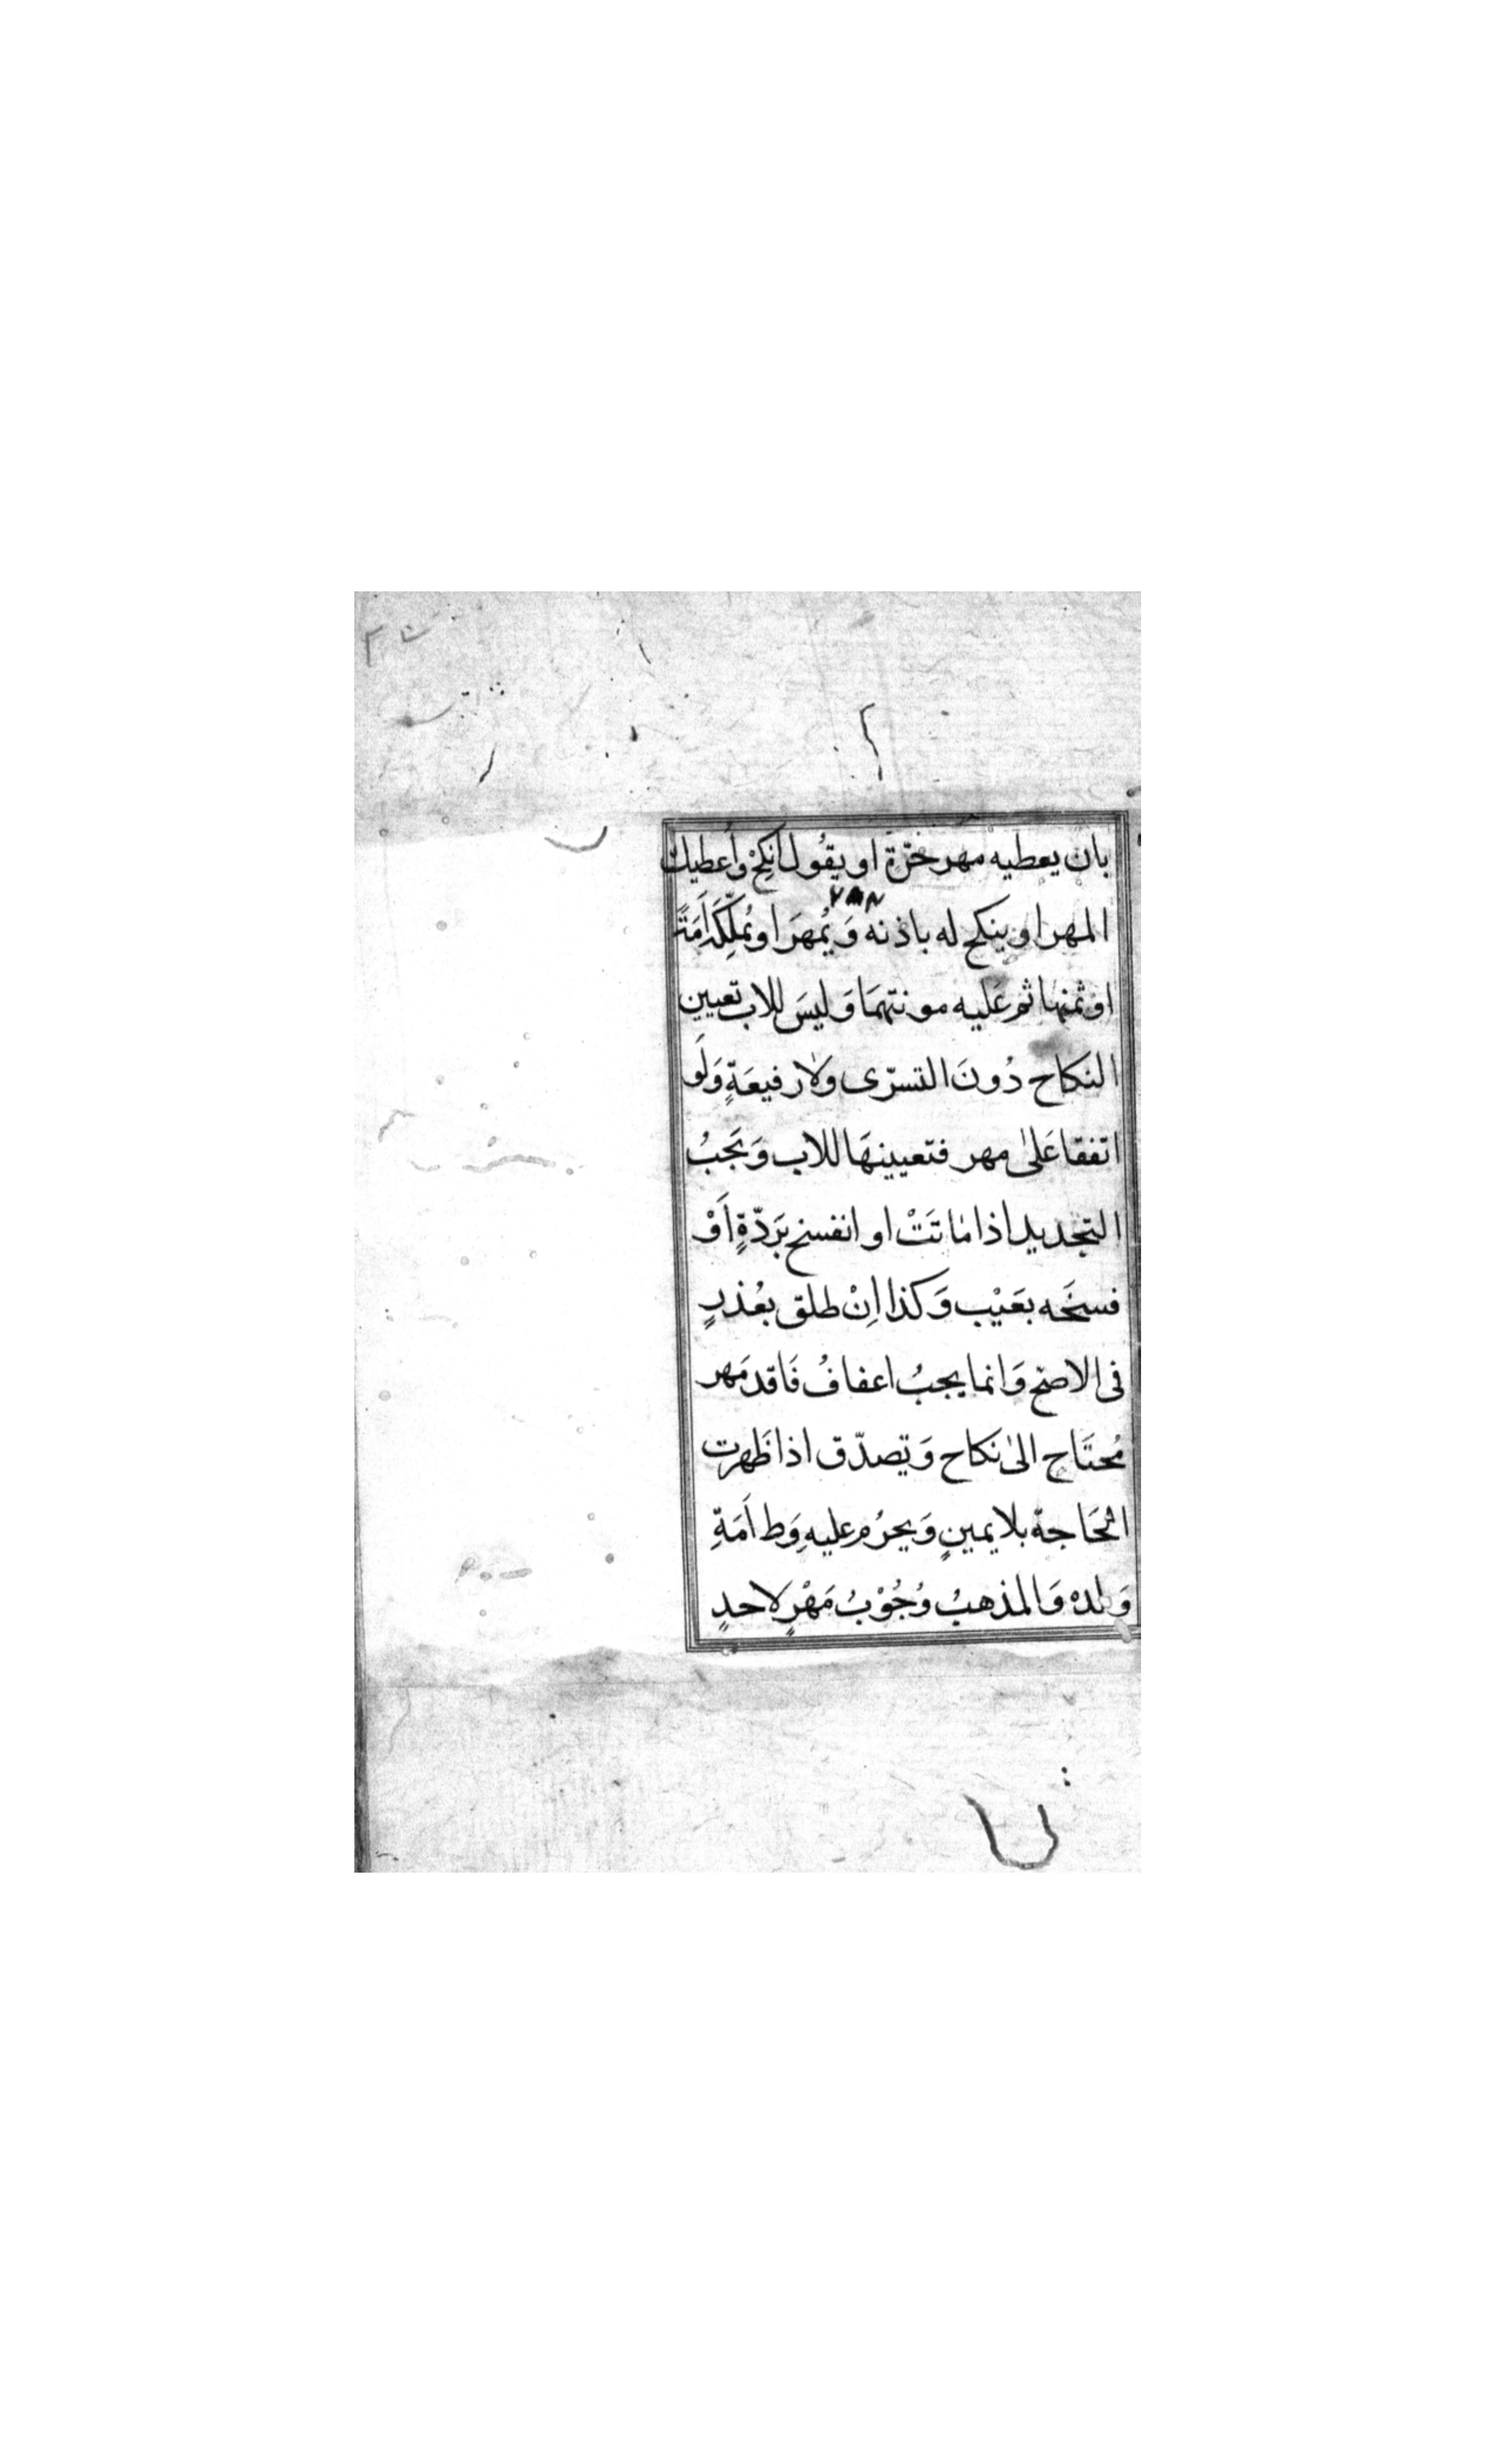 بان يعطيه مهر حُرّة او يقُول اَنكِحْ وَاُعطيك
المهر او ينكح له باذنه وَيُمهرَ او يُملِّكَه اَمَةً
او ثمنها ثم عَليه مونتهمَا وَ ليسَ للاب تعيين
النكاح دُونَ التسرّى ولا رفيعَةٍ وَلَو
اتفقا عَلىٰ مهر فتعيينهَا للاب وَ يَجبُ
التجديد اذا ماتَتْ او انفسخ برَدّةٍ اَوْ
فسخَه بعَيْب وَكذا اِنْ طلق بعُذرٍ
فى الاصح وَ انما يجبُ اعفافُ فَاقد مَهر
مُحتَاج الىٰ نكاح وَ تصدّق اذا ظَهرت
الحَاجة بلا يمينٍ وَ يحرُم عليهِ وَط اَمَةِ
وَلدهْ وَ المذهبُ وُجُوْبُ مَهْرٍ لاحدٍ